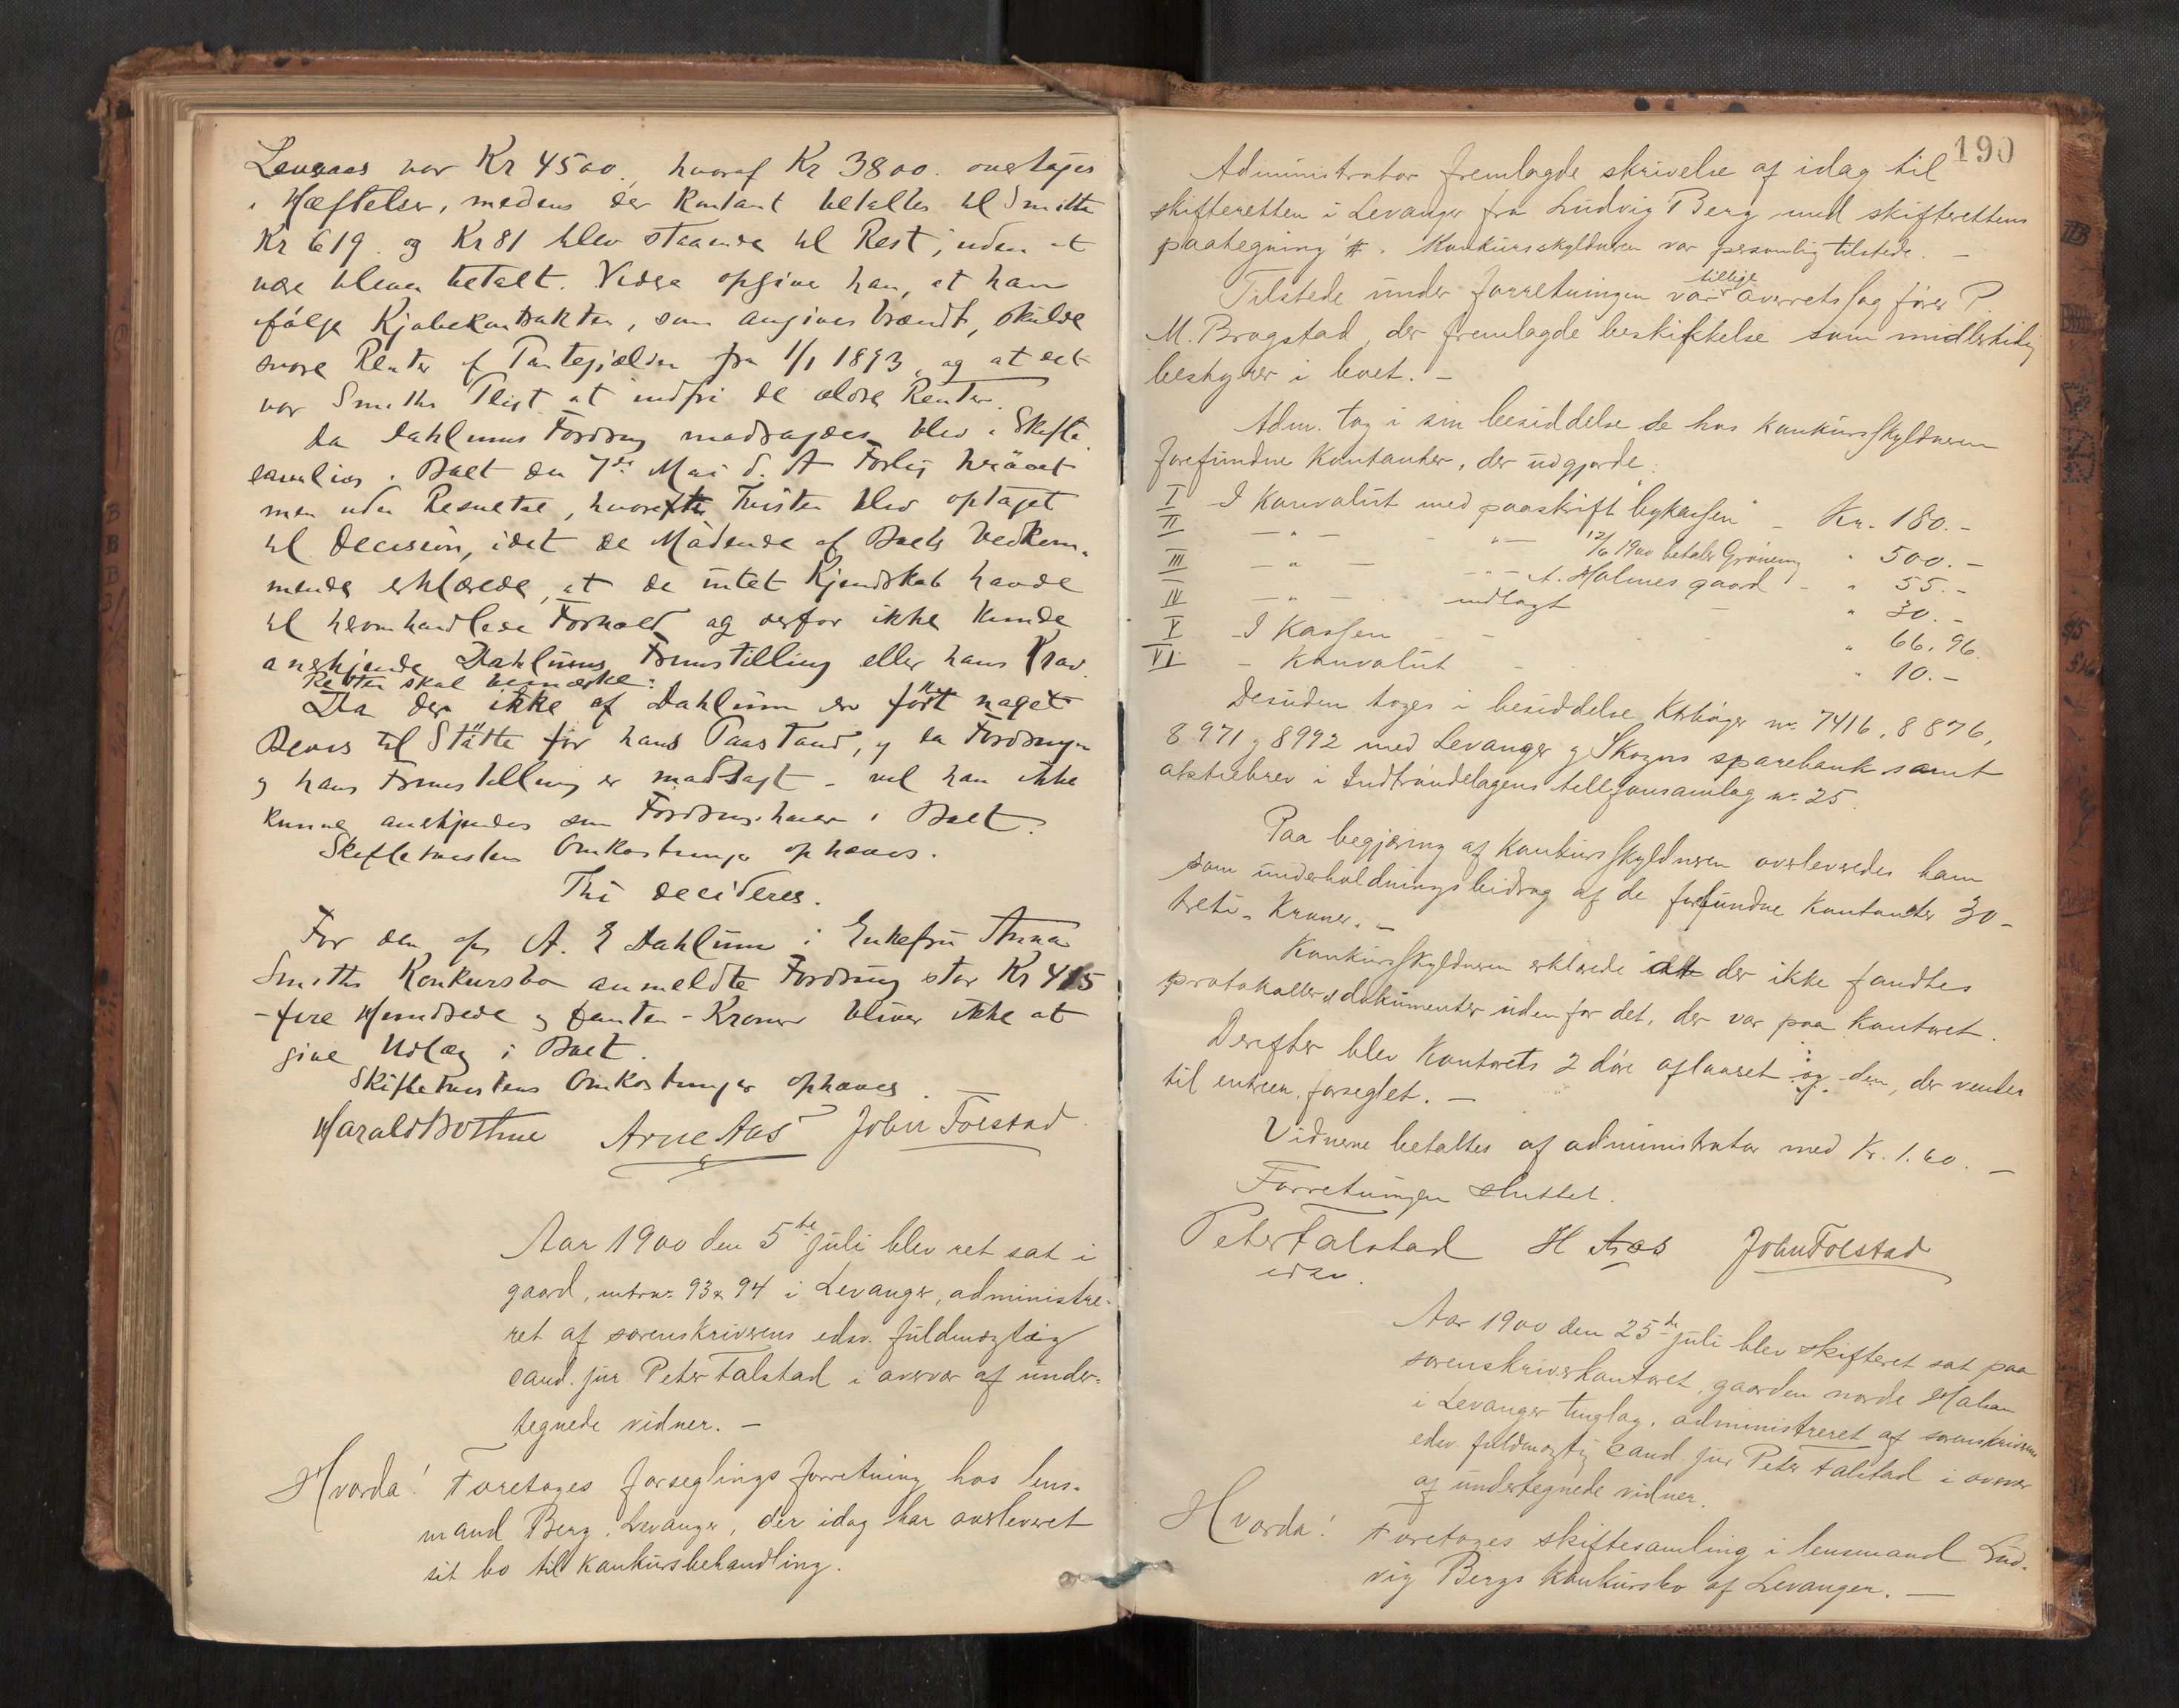 Levaas var Kr 4500., hvoraf Kr 3800. overtages
i Hæftelser, medens der Kontant betaltes til Smith
Kr 619. og Kr 81 blev staaende til Rest, uden at
være bleven betalt. Videre opgiver han, at han
ifølge Kjøbekontrakten, som angives brændt, skulde
svare Renter af Pantegjælden fra 1/1 1893, og at det
var Smiths Pligt at indfri de ældre Renter.
Da Dahlums Fordring modsagdes blev i Skifte
samling i Boet den 7de Mai d. A Forlig prøvet
men uden Resultat, hvorefter Tvisten blev optaget
til Decision, idet de Mødende af Boets Vedkom-
mende erklærede, at de intet Kjendskab havde
til heromhandlede Forhold og derfor ikke kunde
anerkjende Dahlums Fremstilling eller hans Krav.
Retten skal bemærke:
Da der ikke af Dahlum er ført noget
Bevis til Støtte for hans Paastand, og da Fordringen
og hans Fremstilling er modsagt - vil han ikke
kunne anerkjendes som Fordringshaver i Boet.
Skiftetvistens Omkostninger ophæves.
Thi decideres.
For den af A. E Dahlum i Enkefru Anna
Smiths Konkursbo anmeldte Fordring stor Kr 415
- fire Hundrede og femten - Kroner bliver ikke at
give Udlæg i Boet.
Skiftetvistens Omkostninger ophæves.
Harald Bothne Arne Aas John Folstad
Aar 1900 den 5te juli blev ret sat i
gaard, mtrnr. 93 & 94 i Levanger, administre-
ret af sorenskriverens edsv. fuldmægtig
cand. jur Peter Falstad i overvær af under-
tegnede vidner. -
Hvorda! Foretoges forseglingsforretning hos lens-
mand Berg, Levanger, der idag har overleveret
sit bo til konkursbehandling.
190
Administrator fremlagde skrivelse af idag til
skifteretten i Levanger fra Ludvig Berg med skifterettens
paategning #. Konkursskyldneren var personlig tilstede. -
tillige
Tilstede under forretningen var overretssagfører P.
M. Brogstad, der fremlagde beskikkelse som midlertidig
bestyrer i boet. -
Adm. tog i sin besiddelse de hos konkursskyldneren
forefundne Kontanter, der udgjorde:
I I Konvolut med paaskrift "bykassen" - Kr. 180.-
II - " - - " - 12/6 1900 betaler Grønning " 500.-
III - " - - " - A. Holmesgaard - " 55.-
IV - " - indlagt - " 30.-
V I Kassen - - " 66.96.
VI - Konvolut - " 10.-
Desuden toges i besiddelse Ktrbøger nr. 7416, 8876,
8971 og 8992 med Levanger og Skogns sparebank samt
aktiebrev i Indtrøndelagens tellefonsamlag nr. 25.
Paa begjæring af konkursskyldneren overleveredes ham
som underholdningsbidrag af de forefundne kontanter 30 -
treti - Kroner. -
Konkursskyldneren erklærede at der ikke fandtes
protokoller el dokumenter udenfor det, der var paa kontoret.
Derefter blev kontorets 2 døre aflaaset og den, der vender
til entreen, forseglet. -
Vidnerne betaltes af administrator med Kr. 1.60. -
Forretningen sluttet.
Peter Falstad H Aas John Folstad
edsv.
Aar 1900 den 25de juli blev skifteret sat paa
sorenskriverkontoret, gaarden nordre Halsan
i Levanger tinglag, administreret af sorenskriverens
edsv. fuldmægtig cand. jur Peter Falstad i overvær
af undertegnede vidner.
Hvorda! Foretoges skiftesamling i lensmand Lud-
vig Bergs konkursbo af Levanger. -